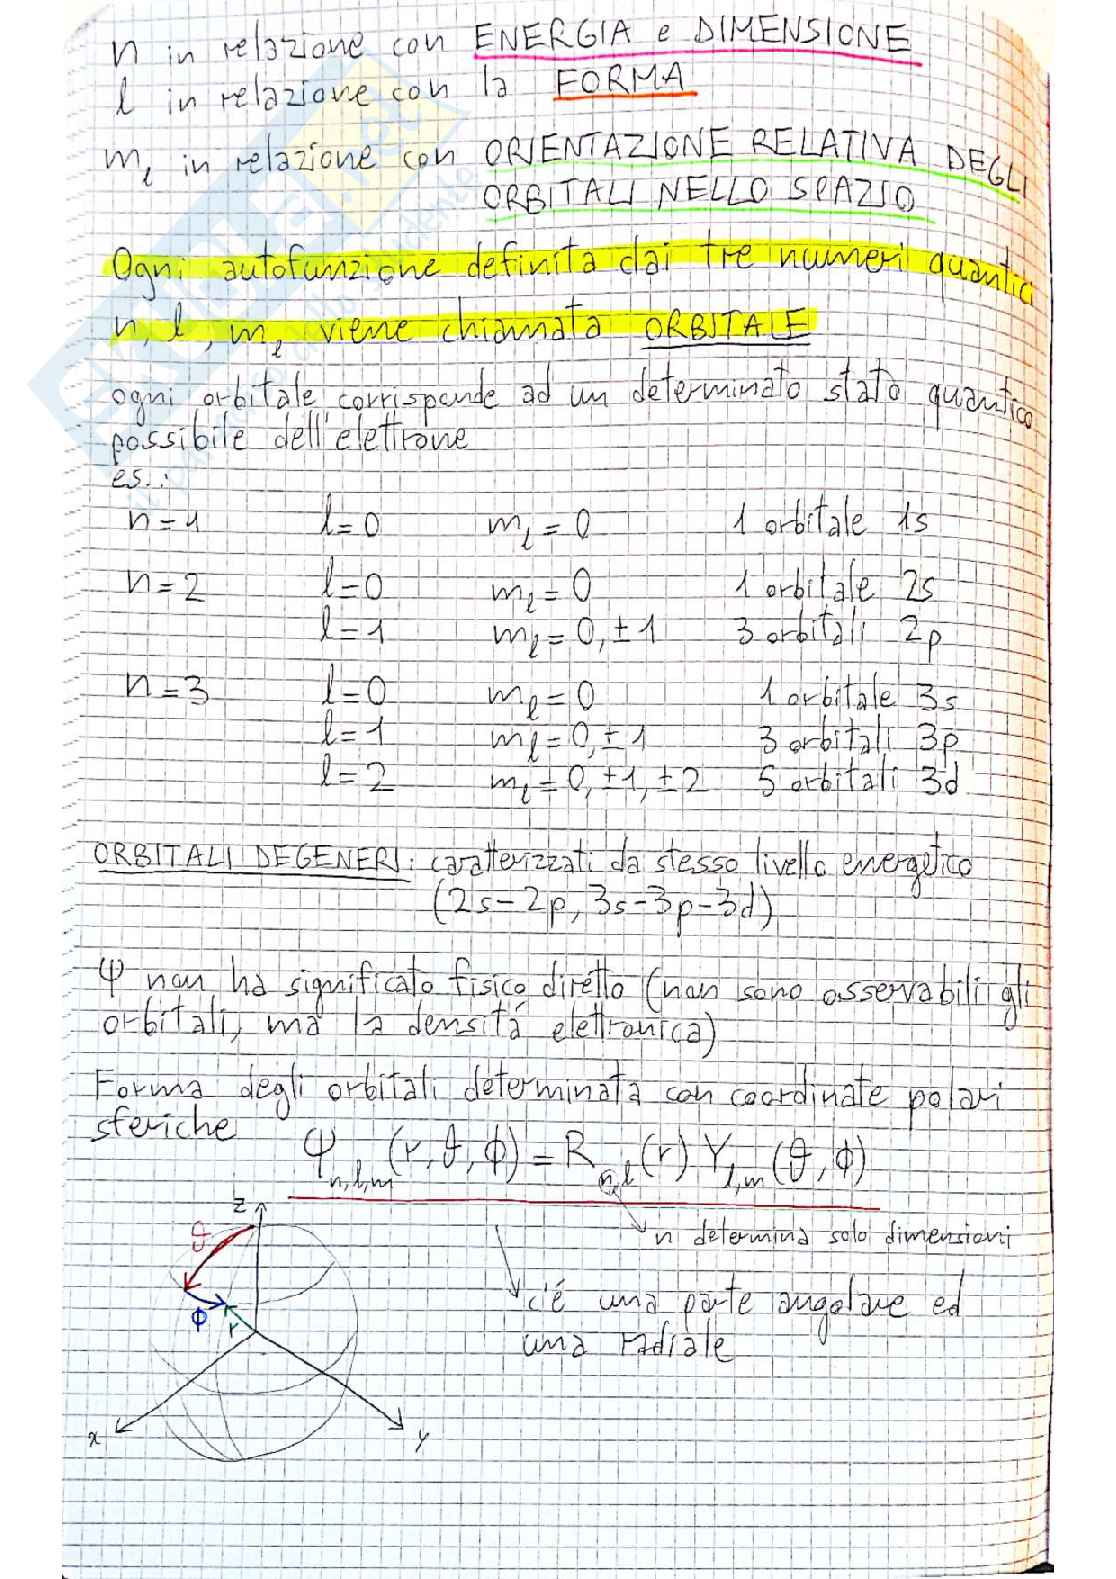 n in relazione con ENERGIA e DIMENSIONE
l in relazione con la FORMA
m_l in relazione con ORIENTAZIONE RELATIVA DEGLI
ORBITALI NELLO SPAZIO
Ogni autofunzione definita dai tre numeri quantici
n, l, m_l viene chiamata ORBITALE
ogni orbitale corrisponde ad un determinato stato quantico
possibile dell'elettrone
es.:
n=1 l=0 m_l=0 1 orbitale 1s
n=2 l=0 m_l=0 1 orbitale 2s
l=1 m_l=0,±1 3 orbitali 2p
n=3 l=0 m_l=0 1 orbitale 3s
l=1 m_l=0,±1 3 orbitali 3p
l=2 m_l=0,±1,±2 5 orbitali 3d
ORBITALI DEGENERI: caratterizzati da stesso livello energetico
(2s-2p, 3s-3p-3d)
Ψ non ha significato fisico diretto (non sono osservabili gli
orbitali, ma la densitá elettronica)
Forma degli orbitali determinata con coordinate polari
sferiche
Ψn,l,m (r,ϑ,ϕ) = Rn,l (r) Yl,m (ϑ,ϕ)
n determina solo dimensioni
c'é una parte angolare ed
una radiale
z
ϑ
ϕ
r
x
y